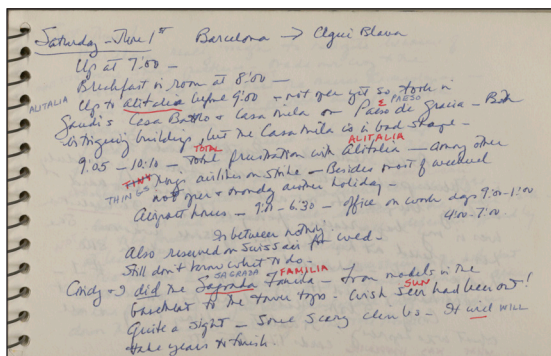 Saturday - June 1st Barcelona → Aqui Blava
Up at 7:00 -
Breakfast in room at 8:00 -
ALITALIA Up to Alitalia before 9:00 - not open yet so took in
PAESO
Gaudi's Casa Batllo & Casa Mila on Paeso de Gracia - Both
intriguing buildings, but the Casa Mila is in bad shape -
TOTAL ALITALIA
9:05 - 10:10 - Total frustration with Alitalia - among other
TINY THINGS things airlines on strike - Besides most of weekend
not open & monday another holiday -
Airport hours - 9:00 - 6:30 - office on work days 9:00 - 1:00
4:00 - 7:00
In between nothing
Also reserved on Swissair for wed -
Still don't know what to do -
SAGRADA FAMILIA
Cindy & I did the Sagrada Familia - from models in the
SUN
basement to the tower tops - Wish Sun had been out!
Quite a sight - Some scary climbs - It will WILL
take years to finish.